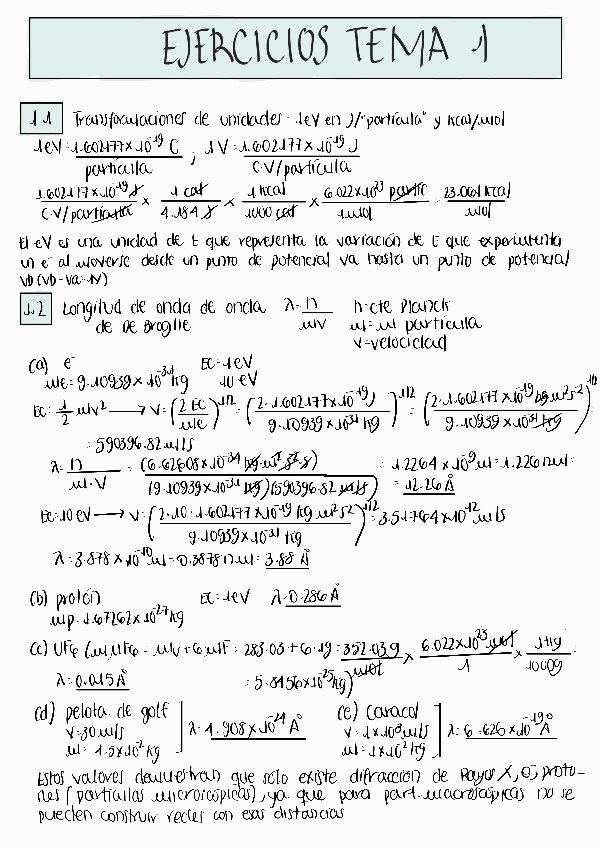 EJERCICIOS TEMA 1
1.1 Transformaciones de unidades - 1eV en J/"partícula" y kcal/mol
1eV = 1.602177×10⁻¹⁹ C / partícula ; 1V = 1.602177×10⁻¹⁹ J / C·V/partícula
1.602177×10⁻¹⁹ J / C·V/partícula × 1 cal / 4.184 J × 1 kcal / 1000 cal × 6.022×10²³ partíc / 1 mol = 23.061 kcal / mol
El eV es una unidad de E que representa la variación de E que experimenta
un e⁻ al moverse desde un punto de potencial Va hasta un punto de potencial
Vb (Vb-Va=1V)
1.2 Longitud de onda de onda λ = h / mv h = cte Planck
de De Broglie m = m partícula
v = velocidad
(a) e⁻ EC = 1eV
me = 9.10939×10⁻³¹ kg 10 eV
EC = 1/2 mv² → v = (2 EC / me)^1/2 = (2·1.602177×10⁻¹⁹ J / 9.10939×10⁻³¹ kg)^1/2 = (2·1.602177×10⁻¹⁹ kg m² s⁻² / 9.10939×10⁻³¹ kg)^1/2 =
= 590396.82 m/s
λ = h / m·v = (6.62608×10⁻³⁴ kg·m² s⁻² s) / (9.10939×10⁻³¹ kg)(590396.82 m/s) = 1.2264×10⁻⁹ m = 1.226 nm =
= 12.26 Å
EC = 10 eV → v = (2·10·1.602177×10⁻¹⁹ kg m² s⁻² / 9.10939×10⁻³¹ kg)^1/2 = 3.51764×10¹² m/s
λ = 3.878×10⁻¹⁰ m = 0.3878 nm = 3.88 Å
(b) protón EC = 1eV λ = 0.286 Å
mp = 1.67262×10⁻²⁷ kg
(c) UF6 (m UF6 = mU + 6 mF = 283.03 + 6·19 = 352.03 g / mol × 6.022×10²³ mol / 1 × 1 kg / 1000g
λ = 0.015 Å = 5.8456×10⁻²⁵ kg)
(d) pelota de golf λ = 4.908×10⁻²⁴ Å (e) Caracol λ = 6.626×10⁻¹⁹ Å
v = 30 m/s v = 1×10⁻³ m/s
m = 4.5×10⁻² kg m = 1×10⁻² kg
Estos valores demuestran que solo existe difracción de Rayos X, e⁻, proto-
nes (partículas microscópicas), ya que para part. macroscópicas no se
pueden construir redes con esas distancias